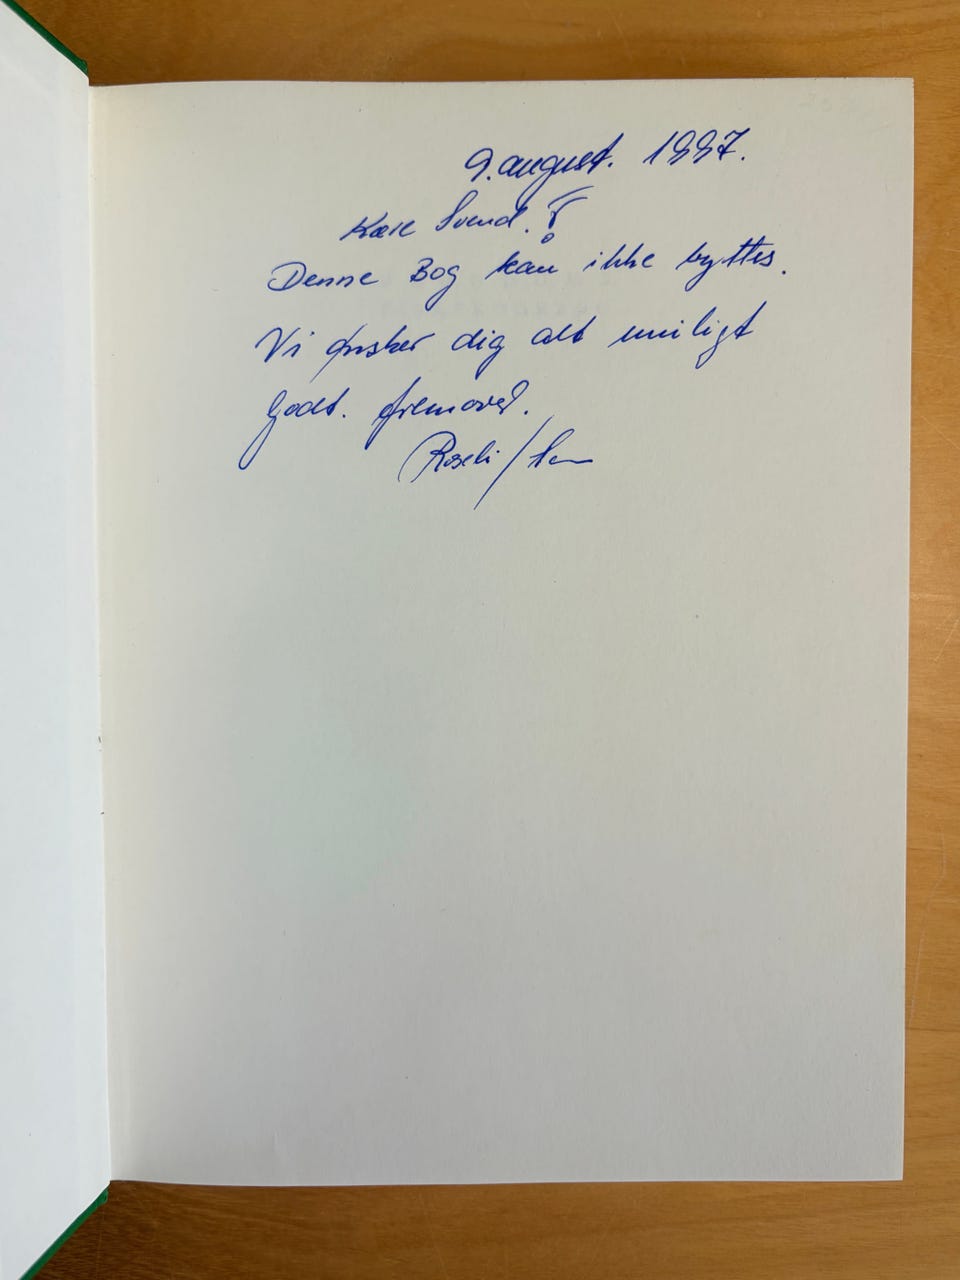 9. august. 1997.
Kære Svend.!
Denne Bog kan ikke byttes.
Vi ønsker dig alt muligt
godt. fremover.